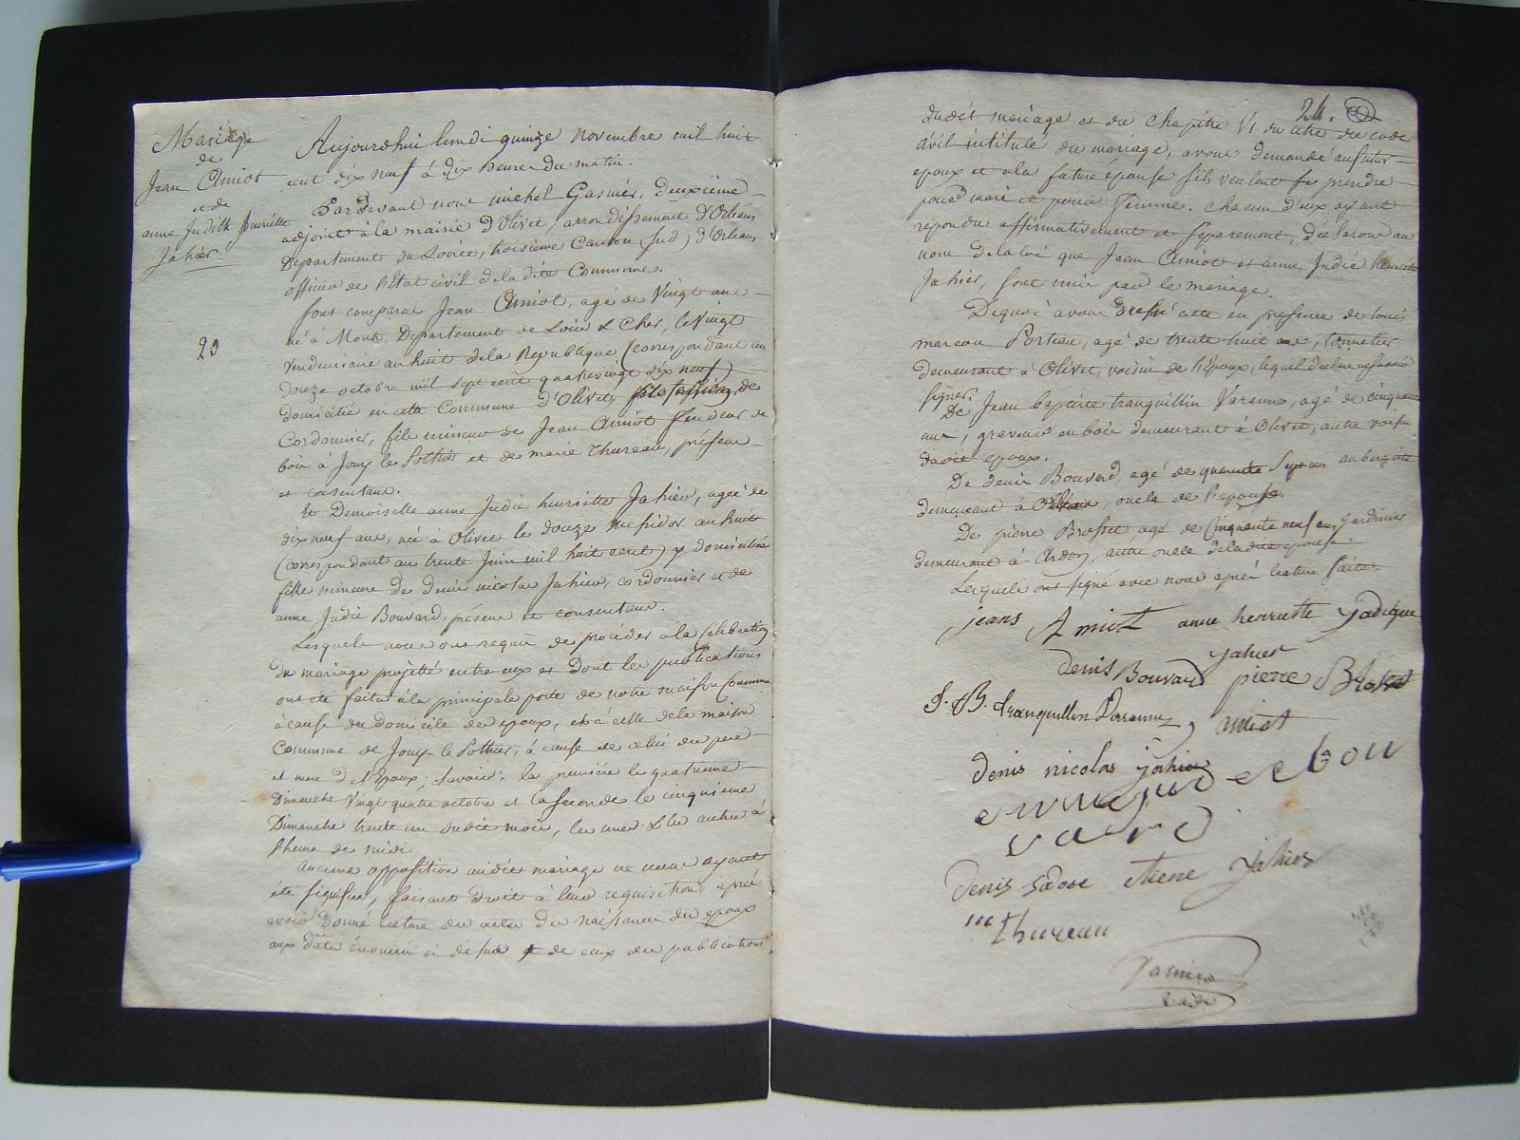 Mariage
de
Jean Amiot
et de
anne Judith henriette
Jahier
29
Aujourdhui lundi quinze novembre mil huit
cent dix neuf à dix heures du matin.
Pardevant nous michel Gasnier, deuxième
adjoint à la mairie d'Olivet, arrondissement d'Orléans
Département du Loiret, troisième Canton (sud) d'Orléans
officier de l'état civil de la dite Commune.
Sont comparus Jean Amiot, agé de Vingt ans
né à Mont Département de Loir & Cher, le vingt
Vendemiaire an huit de la République (correspondant au
douze octobre mil sept cent quatrevingt dix neuf)
domicilié en cette Commune d'Olivet, de
Cordonnier, fils mineur de Jean Amiot fendeur de
bois à Jouy le Pothier et de marie Thureau, présens
et consentans.
Et Demoiselle anne Judie henriette Jahier, agée de
dix neuf ans, née à Olivet le douze messidor an huit
(correspondant au trente Juin mil huit cent) y domiciliée
fille mineure de denis nicolas Jahier, cordonnier et de
anne Judie Bouvard, présens et consentans.
Lesquels nous ont requis de procéder à la célébration
du mariage projetté entre eux et dont les publications
ont été faites à la principale porte de notre maison Commune
à cause du domicile des epoux, et à celle de la maison
Commune de Jouy le Pothier, à cause de celui des pere
et mere de l'Epoux; savoir: la premiere le quatrieme
Dimanche Vingt quatre octobre et la Seconde le cinquieme
Dimanche trente un susdit mois, les unes & les autres à
l'heure de midi.
Aucune opposition audit mariage ne nous ayant
été signifiée, faisant droit à leur requisition, après
avoir donné lecture des actes de naissance des epoux
aux dates énoncées ci dessus & de ceux des publications
24.
dudit mariage et du chapitre VI du titre du code
civil intitulé du mariage, avons demandé au futur
epoux et à la future épouse s'ils veulent se prendre
pour mari et pour femme. chacun d'eux ayant
repondu affirmativement et séparement, déclarons au
nom de la loi que Jean Amiot et anne Judie henriette
Jahier, sont unis par le mariage.
De quoi avons dressé acte en présence de louis
marcou Porteau, agé de trente huit ans, tonnelier
demeurant à Olivet, voisin de l'Epoux, lequel déclare ne savoir
signer.
De Jean baptiste tranquillin Varenne, agé de cinquante
ans, graveur en bois demeurant à Olivet, autre voisin
dudit epoux.
De denis Bouvard, agé de quarante Sept ans aubergiste
demeurant à, oncle de l'epouse.
De pierre Brosset, agé de Cinquante neuf ans, Jardinier
demeurant à Ardon, autre oncle de ladite epouse.
Lesquels ont signé avec nous après lecture faite.
jeans Amiot anne henriette Jadique
Jahier
denis Bouvard pierre Brosset
J. B. tranquillin Varenne, amiot
denis nicolas jahier
anne jud et bou
vard
denis isdore etiene Jahier
m thureau
Gasnier